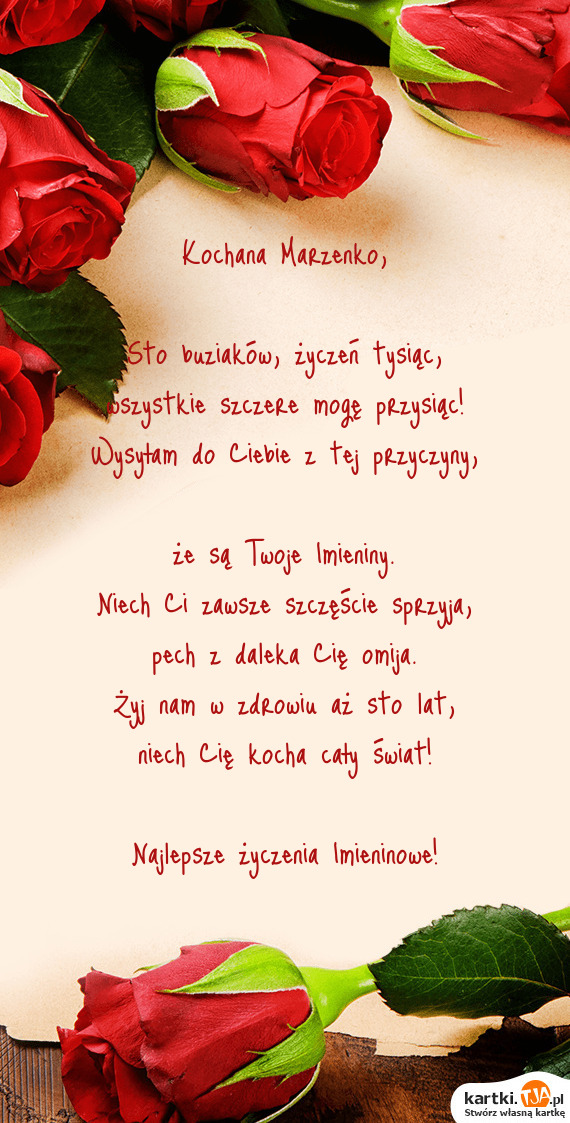 Kochana Marzenko,
Sto buziaków, życzeń tysiąc,
wszystkie szczere mogę przysiąc!
Wysyłam do Ciebie z tej przyczyny,
że są Twoje Imieniny.
Niech Ci zawsze szczęście sprzyja,
pech z daleka Cię omija.
Żyj nam w zdrowiu aż sto lat,
niech Cię kocha cały świat!
Najlepsze życzenia Imieninowe!
kartki.TJA.pl
Stwórz własną kartkę